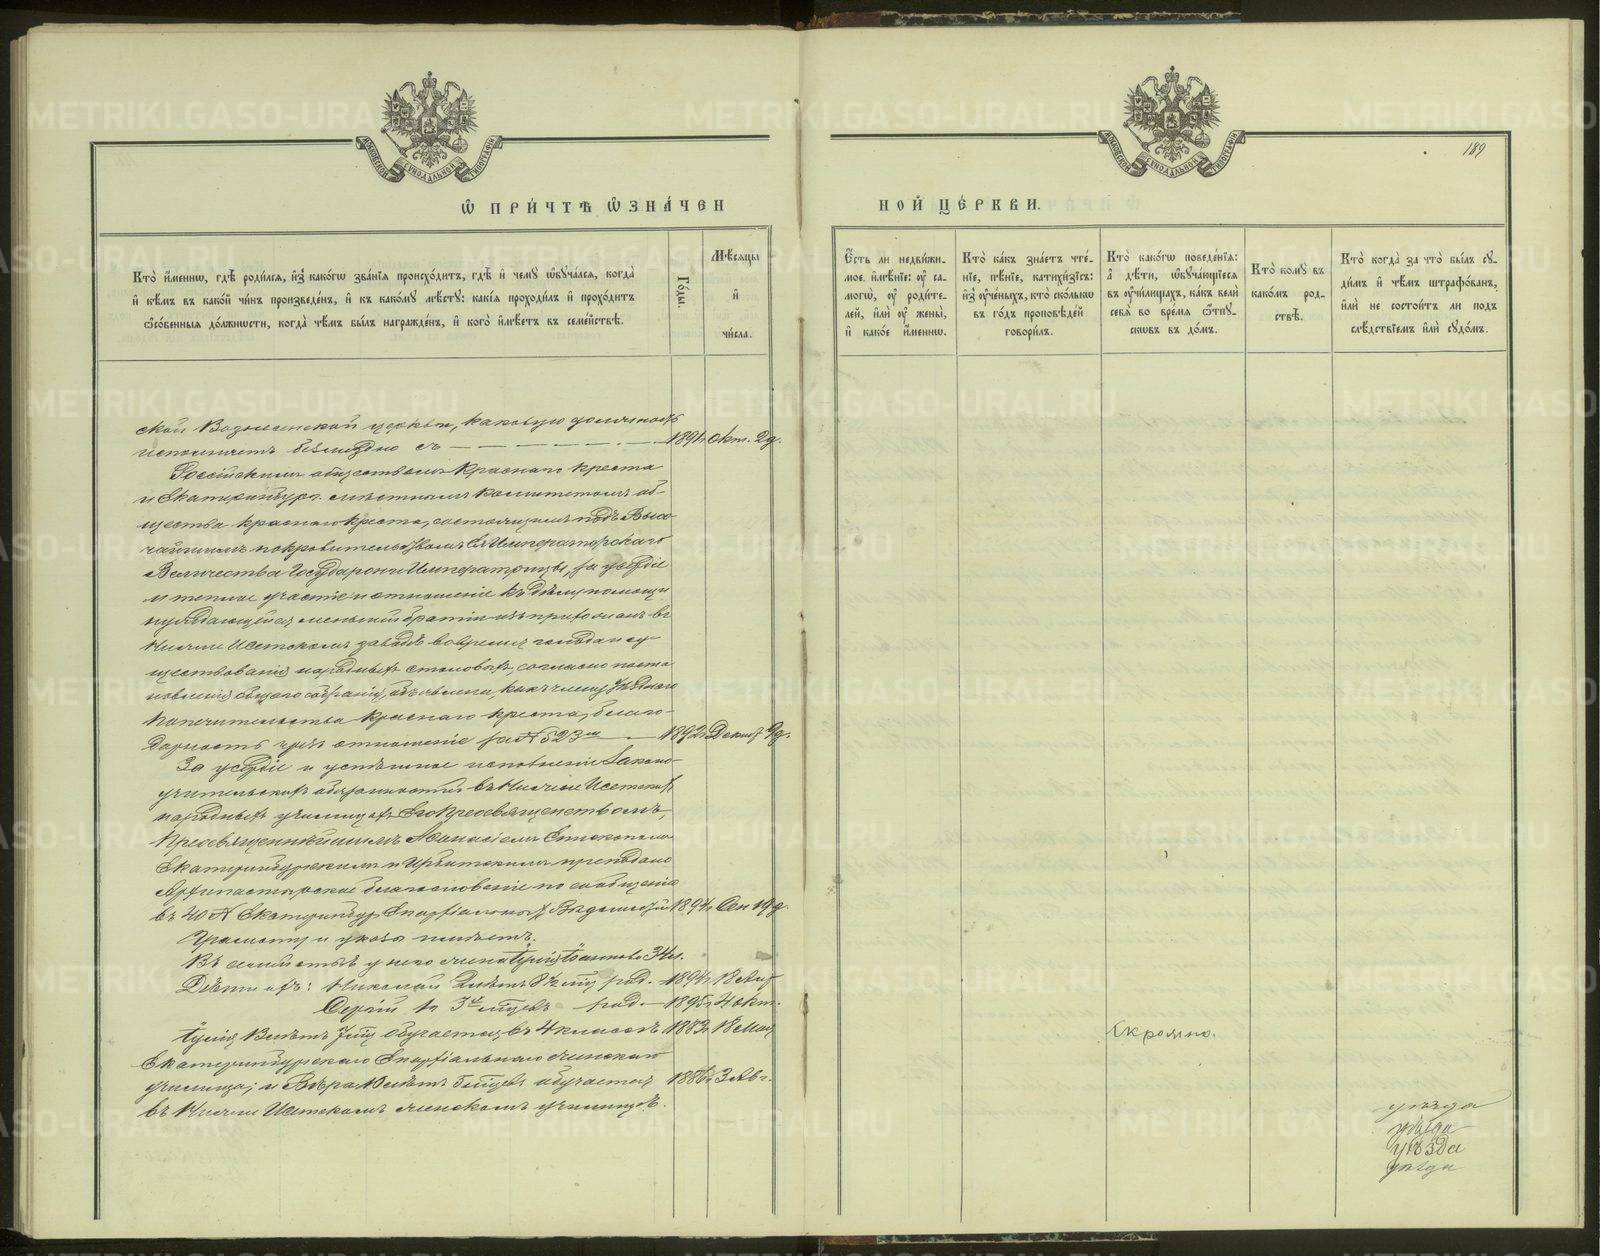 189
Ѡ ПРИ́ЧТѢ Ѡ҆ЗНА́ЧЕН
НОЙ ЦЕ́РКВИ.
Кто̀ и҆́меннѡ, гдѣ̀ роди́лсѧ, и҆з̾ како́гѡ зва́нїѧ происхо́дитъ, гдѣ̀ и҆ чемꙋ̀ ѡ҆бꙋча́лсѧ, когда̀
и҆ кѣ́мъ въ како́й чи́нъ произведе́нъ, и҆ къ како́мꙋ мѣ́стꙋ: какі̑ѧ проходи́лъ и҆ прохо́дитъ
ѡ҆со́бенныѧ до́лжности, когда̀ чѣ́мъ бы́лъ награжде́нъ, и҆ кого̀ и҆мѣ́етъ въ семе́йствѣ.
Го́ды.
Мѣ́сѧцы
и҆
чи́сла.
Е҆́сть ли недви́жи-
мое и҆мѣ́нїе: ᲂу҆ са-
могѡ̀, ᲂу҆ роди́те-
лей, и҆лѝ ᲂу҆ жены̀,
и҆ како́е и҆́меннѡ.
Кто̀ ка́къ зна́етъ чте́-
нїе, пѣ́нїе, катихи́зїсъ:
и҆з̾ ᲂу҆че́ныхъ, кто̀ ско́лькѡ
въ го́дъ проповѣ́дей
говори́лъ.
Кто̀ како́гѡ поведе́нїѧ:
а҆ дѣ́ти, ѡ҆бꙋча́ющїесѧ
въ ᲂу҆чи́лищахъ, ка́къ велѝ
себѧ̀ во вре́мѧ ѿпꙋ-
скѡвъ въ до́мъ.
Кто̀ комꙋ̀ въ
како́мъ род-
ствѣ̀.
Кто̀ когда̀ за что̀ бы́лъ сꙋ-
ди́мъ и҆ тѣ́мъ штрафо́ванъ,
и҆лѝ не состои́тъ ли под̾
слѣ́дствїемъ и҆лѝ сꙋдо́мъ.
ской Вознесенской церкви, каковую должность
исполняетъ безмездно съ — 1891г. Окт. 2д.
Россійскимъ обществомъ Краснаго креста
и Екатеринбург. мѣстнымъ Комитетомъ об-
щества Краснаго Креста, состоящимъ подъ Высо-
чайшимъ покровительствомъ Ея Императорскаго
Величества Государыни Императрицы, за усердіе
и теплое участіе и отношеніе къ дѣлу помощи
нуждающейся меньшей братіи изъ прихожанъ въ
Нижне Исетскомъ заводѣ во время голода и су-
ществованія народныхъ столовыхъ, согласно поста
новленія общаго собранія, объявлена, какъ члену уѣзднаго
попечительства Краснаго креста, благо-
дарность чрезъ отношеніе за № 523мъ — 1892г. Декаб. 9д.
За усердіе и успѣшное исполненіе Законо-
учительскихъ обязанностей въ Нижне Исетскихъ
народныхъ училищахъ Его Преосвященствомъ,
Преосвященнѣйшимъ Афанасіемъ Епископомъ
Екатеринбургскимъ и Ирбитскимъ преподано
Архипастырское благословеніе по сообщенію
въ 40 № Екатеринбург Епархіальныхъ Вѣдомостей 1894г. Сен 19д.
Грамоту и указъ имѣетъ.
Въ семействѣ у него жена Іулія Іоаннова 34л.
Дѣти ихъ: Николай 2 лѣтъ 8ми мѣс. род. 1894г. 18 Апр
Сергій 1г 3 мѣсяцевъ род. — 1895г. 4 окт.
Іулія 13 лѣтъ 7 мѣс. обучается въ 4 классѣ 1883г. 18 Мая
Екатеринбургскаго Епархіальнаго женскаго
училища; и Вѣра 10 лѣтъ 5 мѣсяцев обучается 1886г. 3 Авг.
въ Нижне Исетскомъ женскомъ училищѣ.
Скромна.
уѣзда
уѣзда
уѣзда
уѣзда